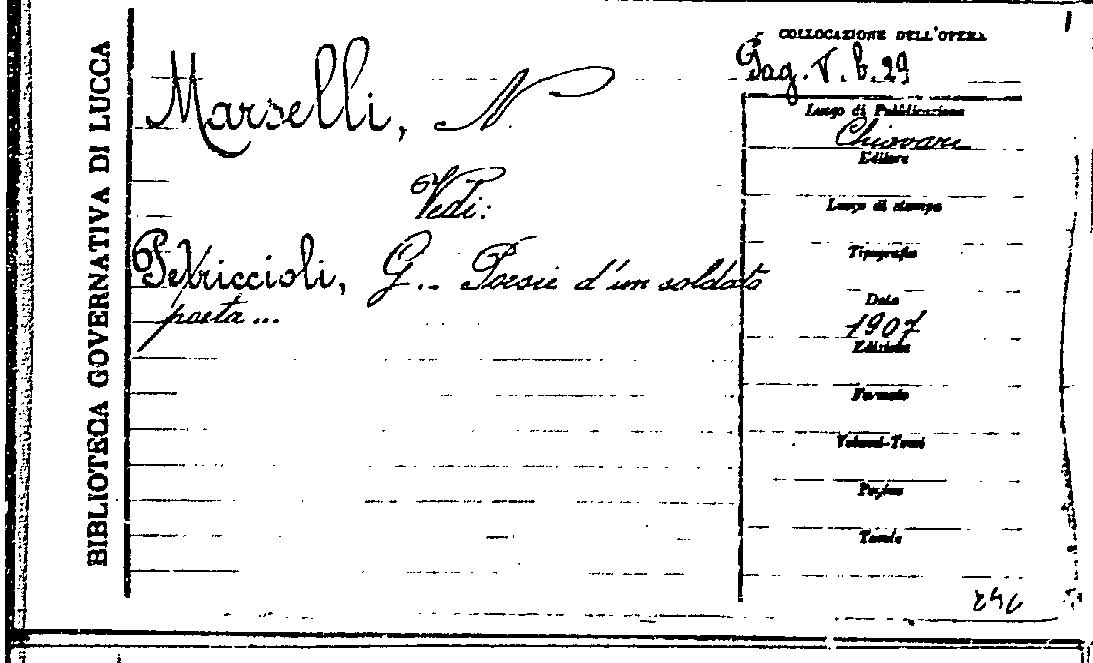 BIBLIOTECA GOVERNATIVA DI LUCCA
COLLOCAZIONE DELL'OPERA
Pag. V. b. 29
Marselli, N.
Vedi:
Petriccioli, G.. Poesie d'un soldato
poeta...
Luogo di Pubblicazione
Chiavari
Editore
Luogo di stampa
Tipografia
Data
1907
Edizione
Formato
Volumi-Tomi
Pagine
Tavole